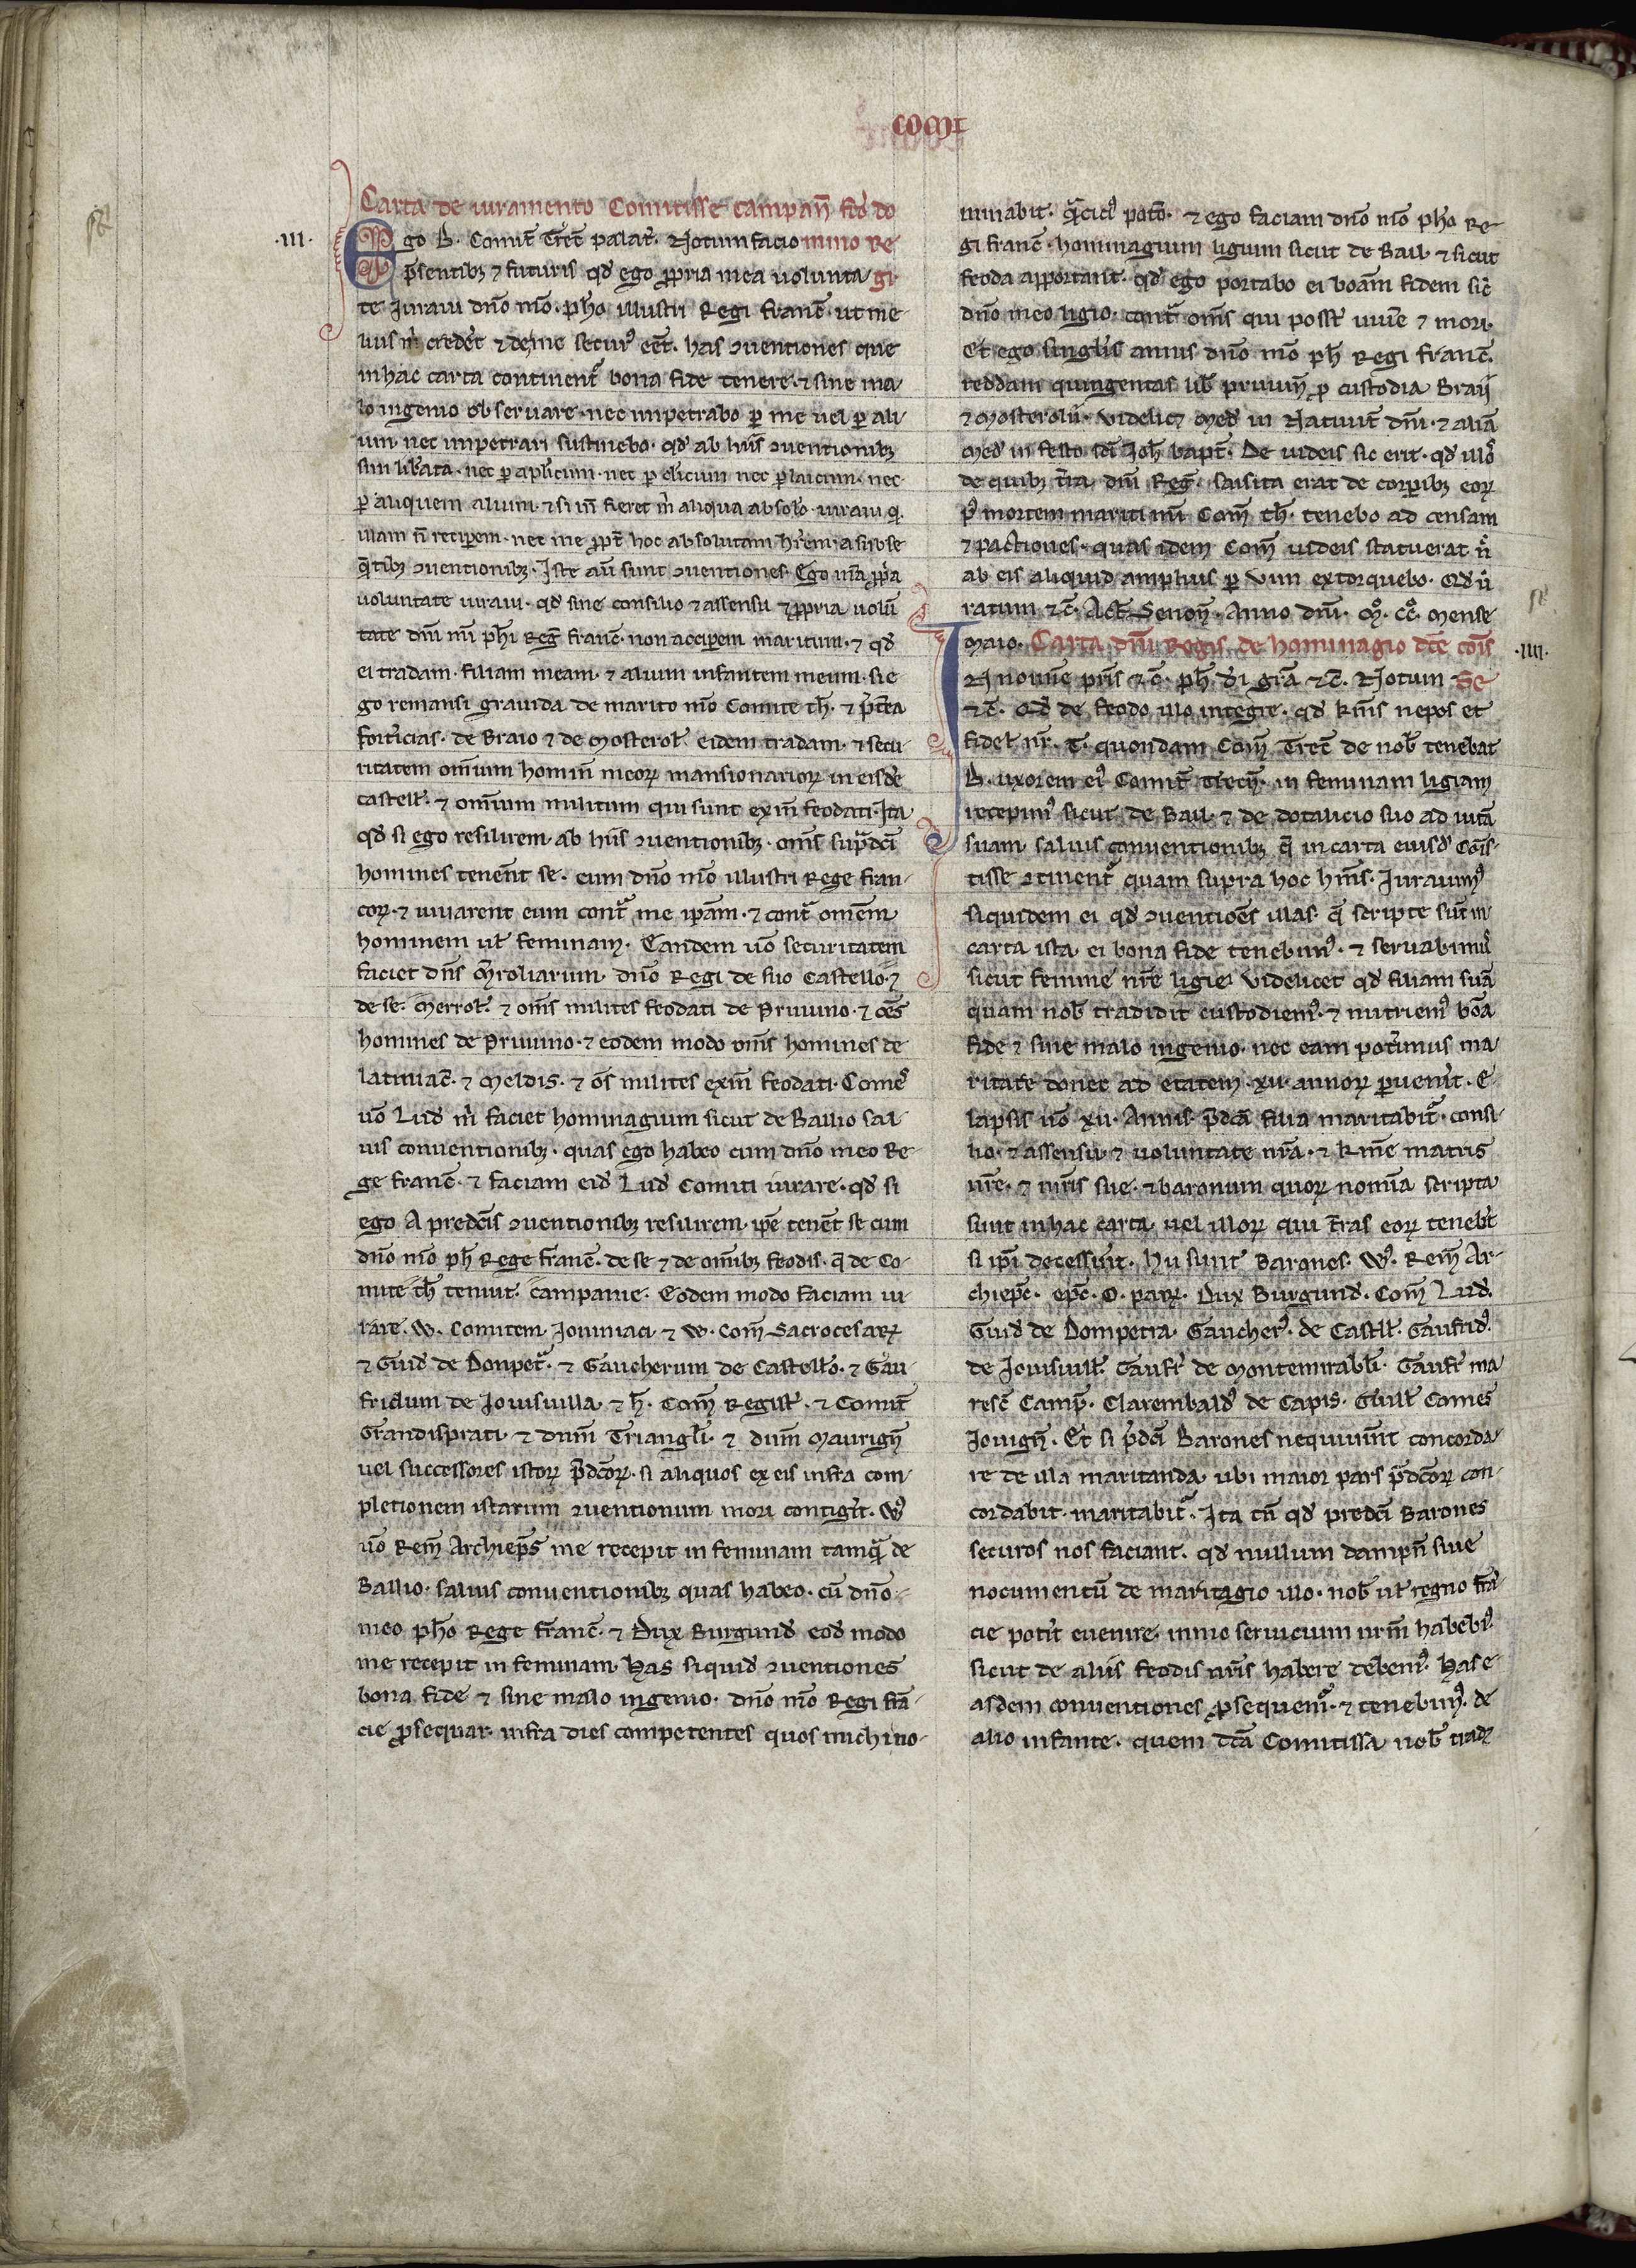 comit
Carta de iuramento Comitisse campan̄ fc̄o do
.III.
Ego B. Comit̄ Trec̄ palat̄. Notum facio mino Re
p̄sentibꝫ ⁊ futuris qđ ego ꝓpria mea uolunta gi
te Iuraui dn̄o m̄o. ph̄o illustri Regi franc̄. ut me-
lius m̄ crederet ⁊ de me securꝰ eēt. has ꝯuentiones que
in hac carta continent᷑ bona fide tenere. ⁊ sine ma-
lo ingenio obseruare. nec impetrabo ꝑ me uel ꝑ ali-
um. nec impetrari sustinebo. qđ ab hiis ꝯuentionibꝫ
sim lib̄ata. nec ꝑ apl̄icum. nec ꝑ cl̄icum nec ꝑ laicum. nec
ꝑ aliquem alium. ⁊ si in̄ fieret m̄ aliqua absolo. iuraui qđ
illam n̄ reciperem. nec me ꝓpt̄ hoc absolutam hr̄em. a subse
q̄ntibꝫ ꝯuentionibꝫ. Iste aut̄ sunt ꝯuentiones. Ego m̄a ꝓp̄a
uoluntate iuraui. qđ sine consilio ⁊ assensu ⁊ ꝓpria uolū
tate dn̄i mī ph̄i Reḡ franc̄. non accip̄em maritum. ⁊ qđ
ei tradam. filiam meam. ⁊ alium infantem meum. si e
go remansi grauida de marito m̄o Comite th̄. ⁊ p̄t̄ea
fort̄icias. de Braio ⁊ de Mosterol̄. eidem tradam. ⁊ secu-
ritatem omnium homin̄ meoꝝ mansionarioꝝ in eisdē
castell̄. ⁊ omnium militum qui sunt exin̄ feodati. Ita
qđ si ego resilirem. ab hiis ꝯuentionibꝫ. om̄s sup̄dc̄i
homines tenerent se. cum dn̄o m̄o illustri Rege fran-
coꝝ. ⁊ iuuarent eum cont᷑ me ip̄am. ⁊ cont᷑ omnem
hominem ul̄ feminam. Eandem uō securitatem
faciet dn̄s M̄roliarum. dn̄o Regi de suo Castello. ⁊
de se. Merrol̄. ⁊ om̄s milites feodati de Pruuino. ⁊ oēs
homines de Pruuino. ⁊ eodem modo om̄s homines de
latiniac̄. ⁊ Meldis. ⁊ ōs milites exin̄ feodati. Comes
uō Lud̄ m̄ faciet hominagium sicut de Ballio sal-
uis conuentionibꝫ. quas ego habeo cum dn̄o meo Re-
ge franc̄. ⁊ faciam eid̄ Lud̄ Comiti iurare. qđ si
ego A predc̄is ꝯuentionibꝫ resilirem. ip̄e tenēt se cum
dn̄o m̄o ph̄ Rege franc̄. de se ⁊ de omībꝫ feodis. q̄ de Co-
mite th̄ tenuit. campanie. Eodem modo faciam iu-
rare. W. Comitem Iouiniaci ⁊ W. Com̄ Sacrocesaꝝ
⁊ Guid̄ de Donpet᷑. ⁊ Gaucherum de Castell̄o. ⁊ Gau-
fridum de Iouisuilla ⁊ h̄. Com̄ Regist̄. ⁊ Comit̄
Grandisprati. ⁊ dnm̄ Triangl̄i. ⁊ dnm̄ Maurign̄
uel successores istoꝝ p̄dc̄oꝝ. si aliquos ex eis infra com-
pletionem istarum ꝯuentionum mori contigit̄. Wꝰ
uō Rem̄ Archiep̄s me recepit in feminam tamq̄ de
Ballio. saluis conuentionibꝫ quas habeo. cū dn̄o
meo ph̄o Rege franc̄. ⁊ Dux Burgund̄ eod̄ modo
me recepit in feminam. Has siquid̄ ꝯuentiones
bona fide ⁊ sine malo ingenio. dn̄o m̄o Regi frā-
cie ꝓsequar. infra dies competentes quos michi no-
minabit. q̄cicꝰ potō. ⁊ ego faciam dn̄o m̄o ph̄o Re-
gi franc̄. hominagium ligium sicut de Bail. ⁊ sicut
feoda apportant. qđ ego portabo ei bonam fidem sic̄
dn̄o meo ligio. cont᷑ om̄s qui possēt uiuē ⁊ mori.
Et ego singl̄is annis dn̄o m̄o ph̄ Regi franc̄.
reddam quingentas lib̄ pruuin̄. ꝓ custodia Braij
⁊ Mosterolii. videlicꝫ Med̄ in Natiuit̄ dn̄i. ⁊ aliā
Med̄ in festo sc̄i Ioh̄ bapt̄. De iudeis sic erit. qđ illoꝝ
de quibꝫ t̄ra dn̄i Reḡ. saisita erat de corꝑibꝫ eoꝝ
pꝰ mortem mariti mī Com̄ th̄. tenebo ad censam
⁊ pactiones. quas idem Com̄ iudeis statuerat n̄
ab eis aliquid amplius ꝑ vim extorquebo. Qđ ut
ratum ⁊c̄. Act̄ Senon̄. Anno dn̄i. M̊. CC̊. mense
maio. Carta dn̄i Regis de hominagio dc̄e com̄s
.IIII.
IN nomine p̄ris ⁊c̄. ph̄ dei gr̄a ⁊c̄. Notum Se
⁊c̄. Qđ de feodo illo integre. qđ km̄s nepos et
fidel̄ nr̄. T. quondam Com̄ Trec̄ de nob̄ tenebat
B. uxorem eiꝰ Comit̄ trecn̄. in feminam ligiam
recepimꝰ sicut de Bail. ⁊ de dotalicio suo ad uitā
suam saluis conuentionibꝫ q̄ in carta eiusd̄ Com̄i-
tisse ꝯtinent᷑ quam supra hoc hm̄s. Iurauimꝰ
siquidem ei qđ ꝯuentiōes illas. q̄ scripte sūt in
carta ista. ei bona fide tenebimꝰ. ⁊ seruabimꝰ
sicut femine nr̄e ligie. videlicet qđ filiam suā
quam nob̄ tradidit custodiemꝰ. ⁊ nutriemꝰ bōa
fide ⁊ sine malo ingenio. nec eam pot̄imus ma-
ritare donec ad etatem .xii. annoꝝ ꝑuenit̄. E-
lapsis uō .xii. Annis. p̄dc̄a filia maritabit᷑. consi-
lio. ⁊ assensu ⁊ uoluntate nr̄a. ⁊ km̄e matris
nr̄e. ⁊ mr̄is sue. ⁊ baronum quoꝝ nomina scripta
sunt in hac carta. uel illoꝝ qui t̄ras eoꝝ teneb̄t
si ip̄i decessint̄. Hii sunt Barones. Wꝰ. Rem̄ Ar-
chiep̄c. ep̄c. O. paꝝ. Dux Burgund̄. Com̄ Lud̄.
Guid̄ de Dompetra. Gaucherꝰ. de Castell̄. Gaufridꝰ.
de Iouisuill̄. Gaufr̄ de Montemirabl̄i. Gaufr̄ ma-
resc̄ Camp̄. Clarembaldꝰ de Capis. Guill̄ Comes
Iouign̄. Et si p̄dc̄i Barones nequiuint̄ concorda-
re de illa maritanda. ubi maior pars p̄dc̄oꝝ con-
cordabit. maritabit᷑. Ita tn̄ qđ predc̄i Barones
securos nos faciant. qđ nullum dampn̄ siue
nocumentū de maritagio illo. nob̄ ul̄ regno frā-
cie pot̄it euenire. immo seruicium nr̄m habebimꝰ.
sicut de aliis feodis nr̄is habere debemꝰ. Has e-
asdem conuentiones ꝓsequemꝰ. ⁊ tenebimꝰ. de
alio infante. quem dc̄a Comitissa nob̄ tradꝫ